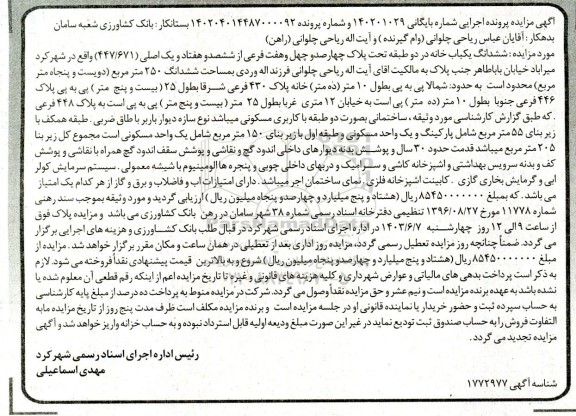 آگهی مزایده پرونده اجرایی شماره بایگانی ۱۴۰۲۰۱۰۲۹ و شماره پرونده ۱۴۰۲۰۴۰۱۴۴۸۷۰۰۰۰۹۲ بستانکار : بانک کشاورزی شعبه سامان
بدهکار : آقایان عباس ریاحی چلوانی (وام گیرنده ) و آیت اله ریاحی چلوانی (راهن)
مورد مزایده : ششدانگ یکباب خانه در دو طبقه تحت پلاک چهارصدو چهل وهفت فرعی از ششصدو هفتاد و یک اصلی (۴۴۷/۶۷۱) واقع در شهرکرد
میراباد خیابان باباطاهر جنب پلاک به مالکیت اقای آیت اله ریاحی چلوانی فرزند اله وردی بمساحت ششدانگ ۲۵۰ متر مربع (دویست و پنجاه متر
مربع) محدود است به حدود: شمالا پی به پی بطول ۱۰ متر (ده متر) خانه پلاک ۴۳۰ فرعی شرقا بطول ۲۵ ( بیست و پنج متر ) پی به پی پلاک
۴۴۶ فرعی جنوبا بطول ۱۰ متر (ده متر ) پی است به خیابان ۱۲ متری غربا بطول ۲۵ متر (بیست و پنج متر ) پی به پی است به پلاک ۴۴۸ فرعی
. که طبق گزارش کارشناسی مورد وثیقه ، ساختمانی بصورت دو طبقه با کاربری مسکونی میباشد نوع سازه دیوار باربر با طاق ضربی . طبقه همکف با
زیر بنای ۵۵ متر مربع شامل پارکینگ و یک واحد مسکونی و طبقه اول با زیر بنای ۱۵۰ متر مربع شامل یک واحد مسکونی است مجموع کل زیر بنا
۲۰۵ متر مربع میباشد قدمت حدود ۳۰ سال و پوشش بدنه دیوارهای داخلی اندود گچ و نقاشی و پوشش سقف اندود گچ همراه با نقاشی و پوشش
کف و بدنه سرویس بهداشتی و آشپزخانه کاشی و سرامیک و دربهای داخلی چوبی و پنجره ها الومینیوم با شیشه معمولی . سیستم سرمایش کولر
ابی و گرمایش بخاری گازی . کابینت اشپزخانه فلزی . نمای ساختمان اجر میباشد . دارای امتیازات اب و فاضلاب و برق و گاز از هر کدام یک امتیاز
می باشد . که بمبلغ ۸۵۴۵۰۰۰۰۰۰۰ ریال (هشتاد و پنج میلیارد و چهارصدو پنجاه میلیون ریال ) ارزیابی گردید و مورد وثیقه بموجب سند رهنی
شماره ۱۱۷۷۸ مورخ ۱۳۹۶/۰۸/۲۷ تنظیمی دفترخانه اسناد رسمی شماره ۳۸ شهر سامان در رهن بانک کشاورزی می باشد و مزایده پلاک فوق
از ساعت ۹ الی ۱۲ روز چهارشنبه ۱۴۰۳/۶/۷ در اداره اجرای اسناد رسمی شهر کرد در قبال طلب بانک کشاورزی و هزینه های اجرایی برگزار
می گردد. ضمناً چنانچه روز مزایده تعطیل رسمی گردد، مزایده روز اداری بعد از تعطیلی در همان ساعت و مکان مقرر برگزار خواهد شد . مزایده از
مبلغ ۸۵۴۵۰۰۰۰۰۰۰ ریال (هشتاد و پنج میلیارد و چهارصدو پنجاه میلیون ریال ) شروع و به بالاترین قیمت پیشنهادی نقداً فروخته می شود. لازم
به ذکر است پرداخت بدهی های مالیاتی و عوارض شهرداری و کلیه هزینه های قانونی و غیره تا تاریخ مزایده اعم از اینکه رقم قطعی آن معلوم شده یا
نشده باشد به عهده برنده مزایده است و نیم عشر و حق مزایده نقداً وصول می گردد. شرکت در مزایده منوط به پرداخت ده درصد از مبلغ پایه کارشناسی
به حساب سپرده ثبت و حضور خریدار یا نماینده قانونی او در جلسه مزایده است و برنده مزایده مکلف است ظرف مدت پنج روز از تاریخ مزایده مابه
التفاوت فروش را به حساب صندوق ثبت تودیع نماید در غیر این صورت مبلغ ودیعه اولیه قابل استرداد نبوده و به حساب خزانه واریز خواهد شد و آگهی
مزایده تجدید می گردد.
رئیس اداره اجرای اسناد رسمی شهرکرد
مهدی اسماعیلی
شناسه آگهی ۱۷۷۲۹۷۷